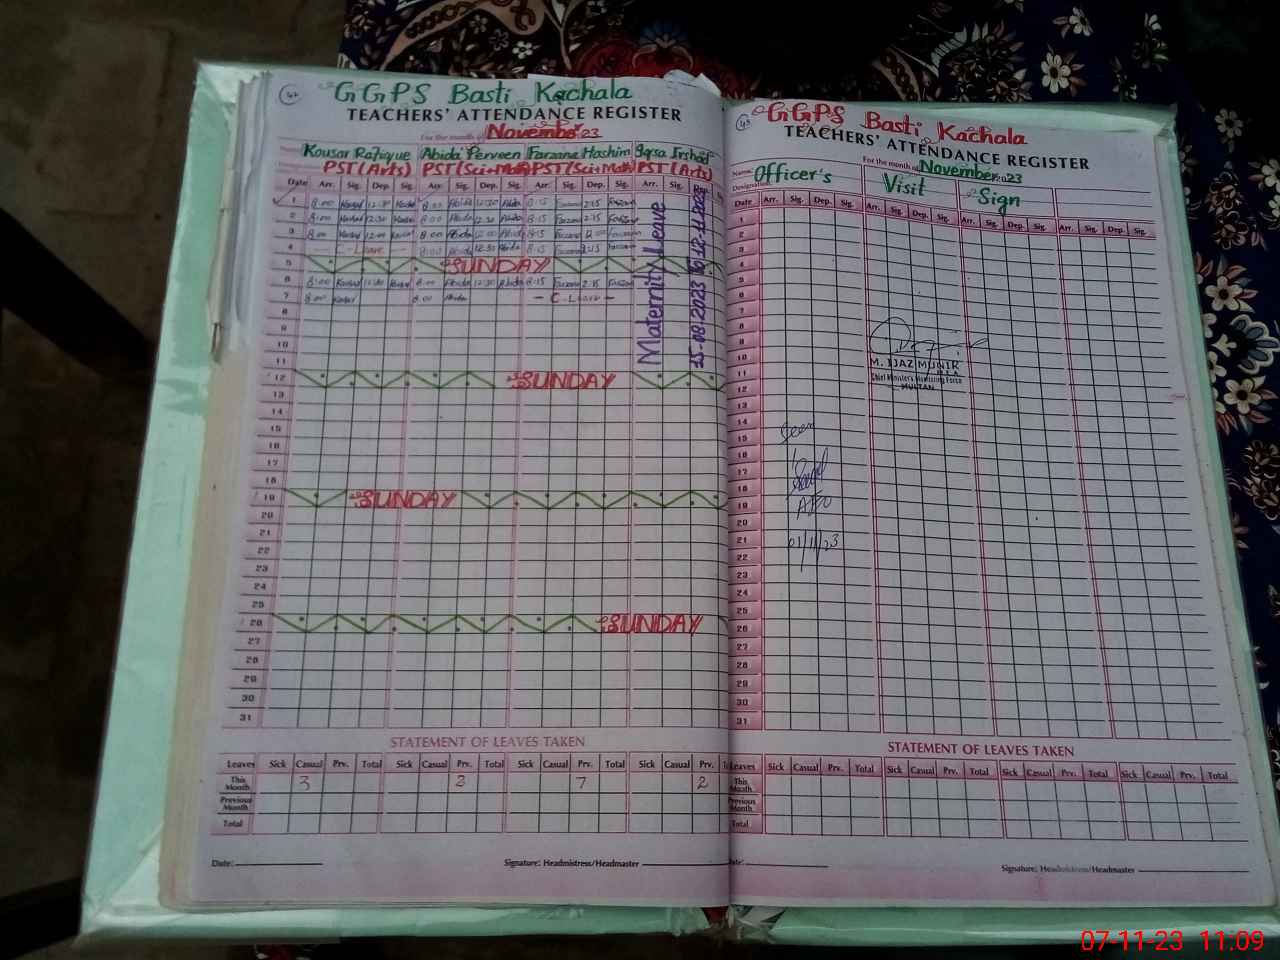 47
GGPS Basti Kachala
TEACHERS' ATTENDANCE REGISTER
For the month of November 23
Kousar Rafique Abida Perveen Farzana Hashim Iqsa Irshad
PST(Arts) PST(Sci+Math) PST(Sci+Math) PST(Arts)
Date Arr. Sig. Dep. Sig. Arr. Sig. Dep. Sig. Arr. Sig. Dep. Sig. Arr. Sig.
1 8:00 Kousar 12:30 Kousar 8:00 Abida 12:30 Abida 8:15 Farzana 2:15 Farzana
2 8:00 Kousar 12:30 Kousar 8:00 Abida 12:30 Abida 8:15 Farzana 2:15 Farzana
3 8:00 Kousar 12:00 Kousar 8:00 Abida 12:00 Abida 8:15 Farzana 12:00 Farzana
4 C-Leave 8:00 Abida 12:30 Abida 8:15 Farzana 2:15 Farzana
5 SUNDAY
6 8:00 Kousar 12:30 Kousar 8:00 Abida 12:30 Abida 8:15 Farzana 2:15 Farzana
7 8:00 Kousar 8:00 Abida - C-Leave -
Maternity Leave
15-08-2023 to 12-11-2023
8
9
10
11
12 SUNDAY
13
14
15
16
17
18
19 SUNDAY
20
21
22
23
24
25
26 SUNDAY
27
28
29
30
31
STATEMENT OF LEAVES TAKEN
Leaves Sick Casual Prv. Total Sick Casual Prv. Total Sick Casual Prv. Total Sick Casual Prv.
This Month 3 3 7 2
Previous Month
Total
Date: Signature: Headmistress/Headmaster
48
GGPS Basti Kachala
TEACHERS' ATTENDANCE REGISTER
For the month of November 2023
Name: Officer's Visit Sign
Designation
Date Arr. Sig. Dep. Sig. Arr. Sig. Dep. Sig. Arr. Sig. Dep. Sig. Arr. Sig. Dep. Sig.
1
2
3
4
5
6
7
8
9
10
11
12
13
14
15
16
17
18
19
20
21
22
23
24
25
26
27
28
29
30
31
M. IJAZ MUNIR
Chief Minister's Monitoring Force
MULTAN
Seen
AEO
01/11/23
STATEMENT OF LEAVES TAKEN
Leaves Sick Casual Prv. Total Sick Casual Prv. Total Sick Casual Prv. Total Sick Casual Prv. Total
This Month
Previous Month
Total
Date: Signature: Headmistress/Headmaster
07-11-23 11:09